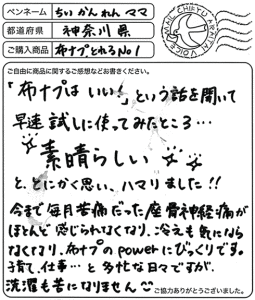 ペンネーム ちいかんれんママ
都道府県 神奈川県
ご購入商品 布ナプとれるNo1
ご自由に商品に関するご感想などお書きください。
「布ナプは いい!」という話を聞いて
早速 試しに使ってみたところ…
素晴らしい
と、とにかく思い、ハマりました!!
今まで毎月苦痛だった座骨神経痛が
ほとんど感じられなくなり、冷えも気になら
なくなり、布ナプのpowerにびっくりです。
子育て、仕事…と多忙な日々ですが、
洗濯も苦になりません
ご協力ありがとうございました。